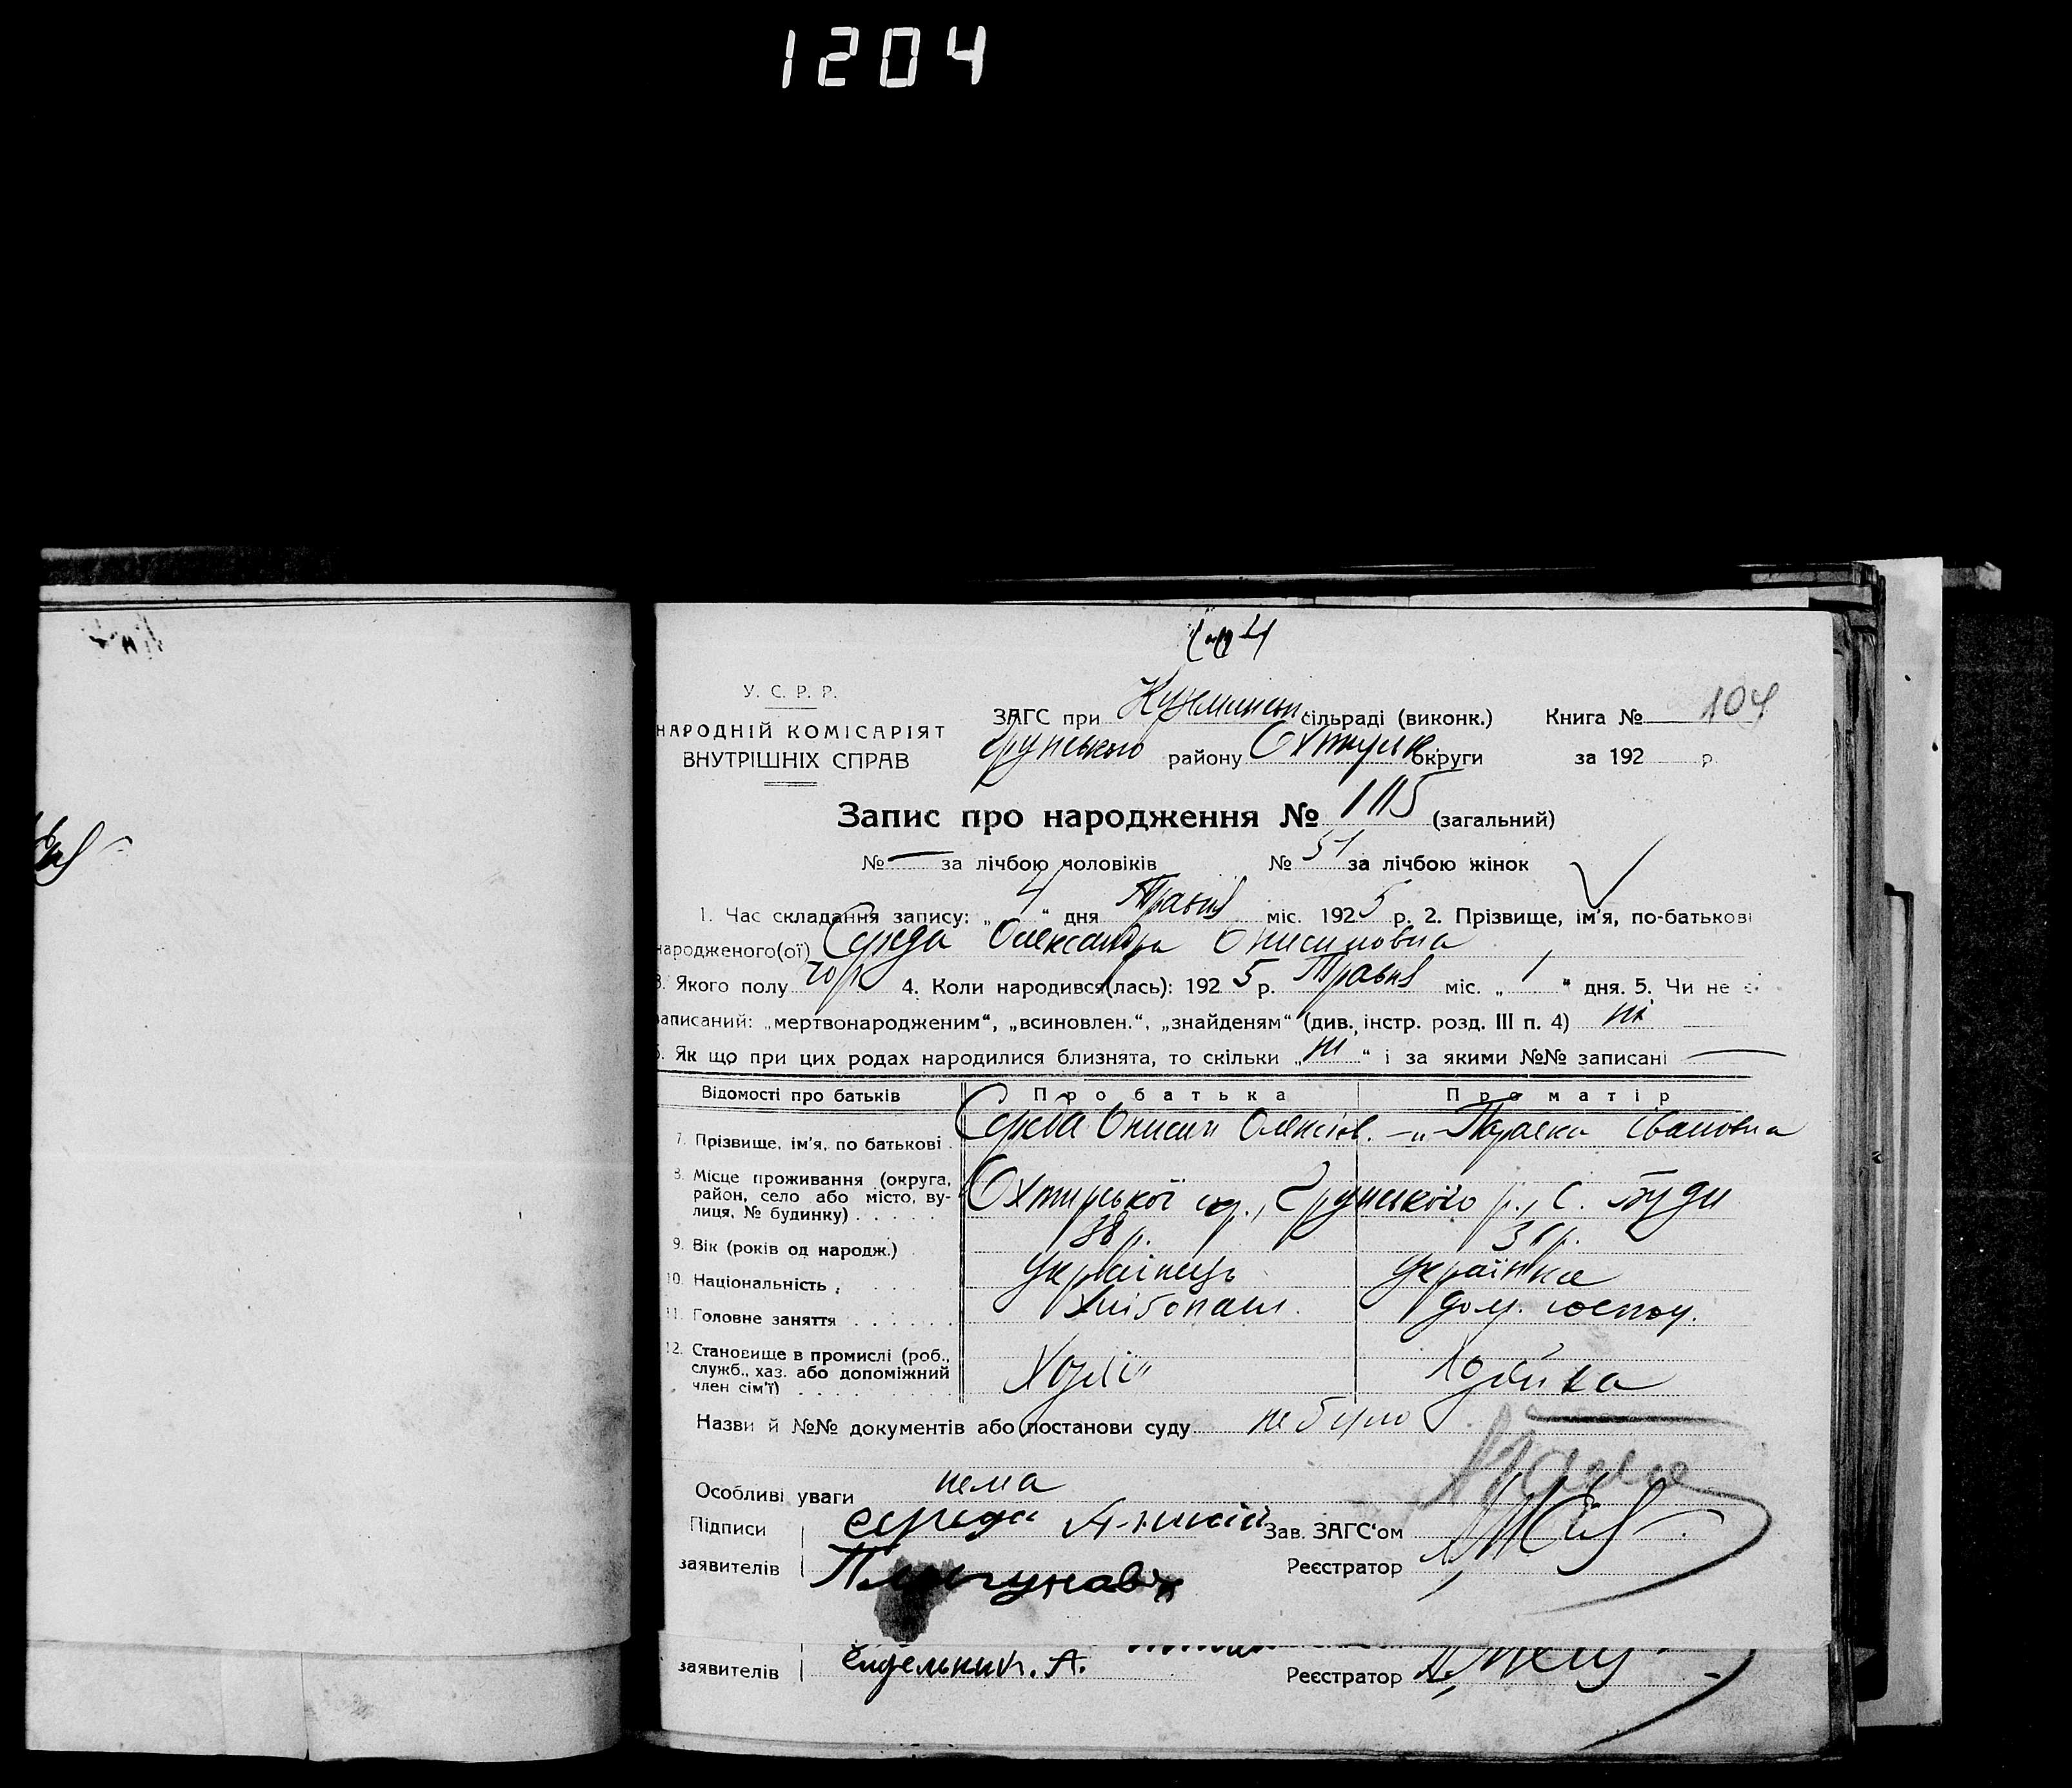 1204
У. С. Р. Р.
НАРОДНІЙ КОМІСАРІЯТ
ВНУТРІШНІХ СПРАВ
ЗАГС при сільраді (виконк.) Книга № 104
Грунського району Охтирськ. округи за 192 р.
Запис про народження № 115 (загальний)
№ — за лічбою чоловіків № 51 за лічбою жінок
1. Час складання запису: „4“ дня Травня міс. 1925 р. 2. Прізвище, ім'я, по-батькові
народженого(ої) Середа Олександра Онисимовна
3. Якого полу 4. Коли народився(лась): 1925 р. Травня міс. „1“ дня. 5. Чи не є
записаний: „мертвонародженим“, „всиновлен.“, „знайденям“ (див. інстр. розд. III п. 4) ні
6. Як що при цих родах народилися близнята, то скільки „ні“ і за якими №№ записані —
Відомості про батьків Про батька Про матір
7. Прізвище, ім'я, по батькові . Середа Онисим Олексієв. —„— Параска Івановна
8. Місце проживання (округа, район, село або місто, вулиця, № будинку) . . . . . Охтирської ок., Грунського р., С. Буди
9. Вік (років од народж.) 38 р.
10. Національність . . . . українець українка
11. Головне заняття . . . . . . хлібопаш. дом. господ.
12. Становище в промислі (роб.,
служб., хаз. або допоміжний
член сім'ї) . . . . . . . Хозяїн Хозяйка
Назви й №№ документів або постанови суду не було
Особливі уваги нема
Підписи Середа Зав. ЗАГС'ом
заявителів Реєстратор
заявителів А. Реєстратор